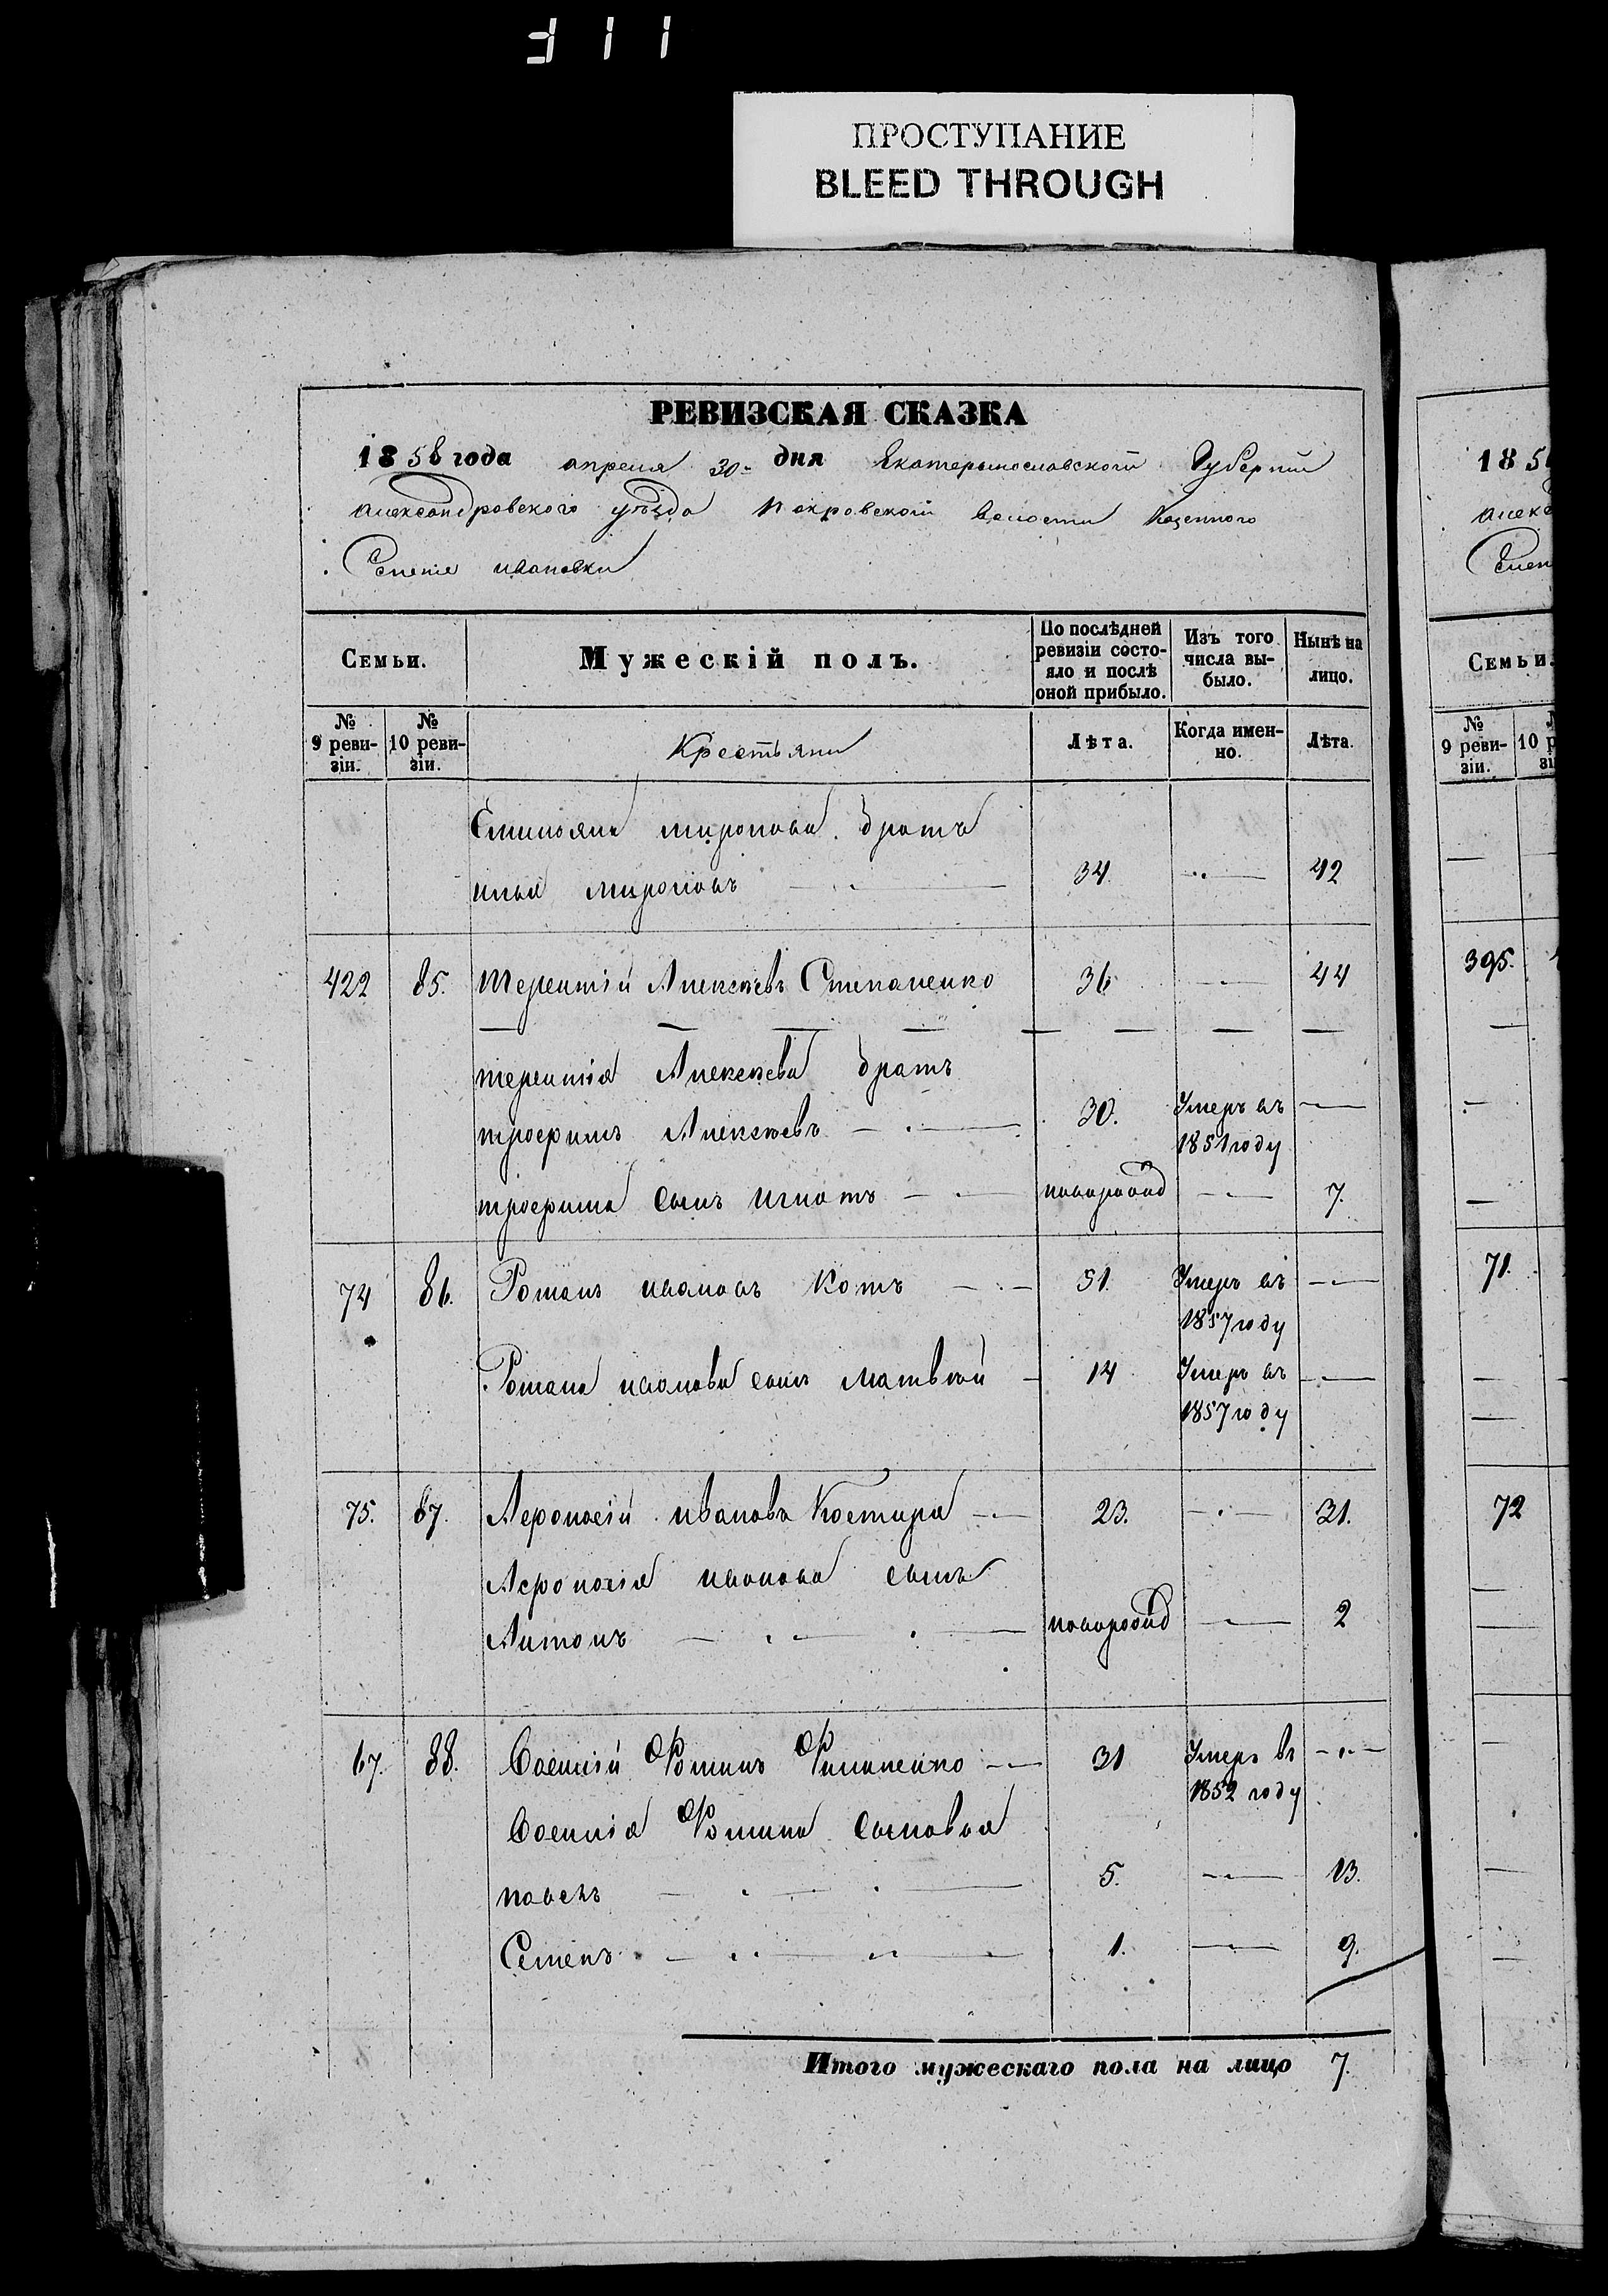 311
ПРОСТУПАНИЕ
BLEED THROUGH
РЕВИЗСКАЯ СКАЗКА
1858 года апреля 30 дня Екатеринославской Губернии
Александровского уѣзда Покровской Волости Казенного
Селение ивановки
Семьи.
Мужескій полъ.
По послѣдней ревизіи состо-
яло и послѣ оной прибыло.
Изъ того числа вы-
было.
Нынѣ на лицо.
№ 9 реви-
зіи.
№ 10 реви-
зіи.
Крестьяни
Лѣта.
Когда имен-
но.
Лѣта.
Емилояна миронова братъ
илья мироновъ 34. 42
422 85. терентій Алексѣевъ Степаненко 36 44
терентія Алексѣева братъ
трофимъ Алексѣевъ 30. Умеръ въ 1851 году
трофима сынъ игнатъ новорожд 7.
74 86. Романъ ивановъ Котъ 51. Умеръ въ 1857 году
Романа иванова сынъ матвѣй 14 Умеръ въ 1857 году
75. 87. Афонасій ивановъ Костыра 23. 31.
Афонасія иванова сынъ
Антонъ новорожд 2
67. 88. Савелій Фоминъ Филипенко 31 Умеръ въ 1852 году
Савелія Фомина сыновья
павелъ 5. 13.
Семенъ 1. 9.
Итого мужескаго пола на лицо 7.
185
Алекс
Селен
Семьи.
№ 9 реви-
зіи.
10 р
зі
395.
71.
72